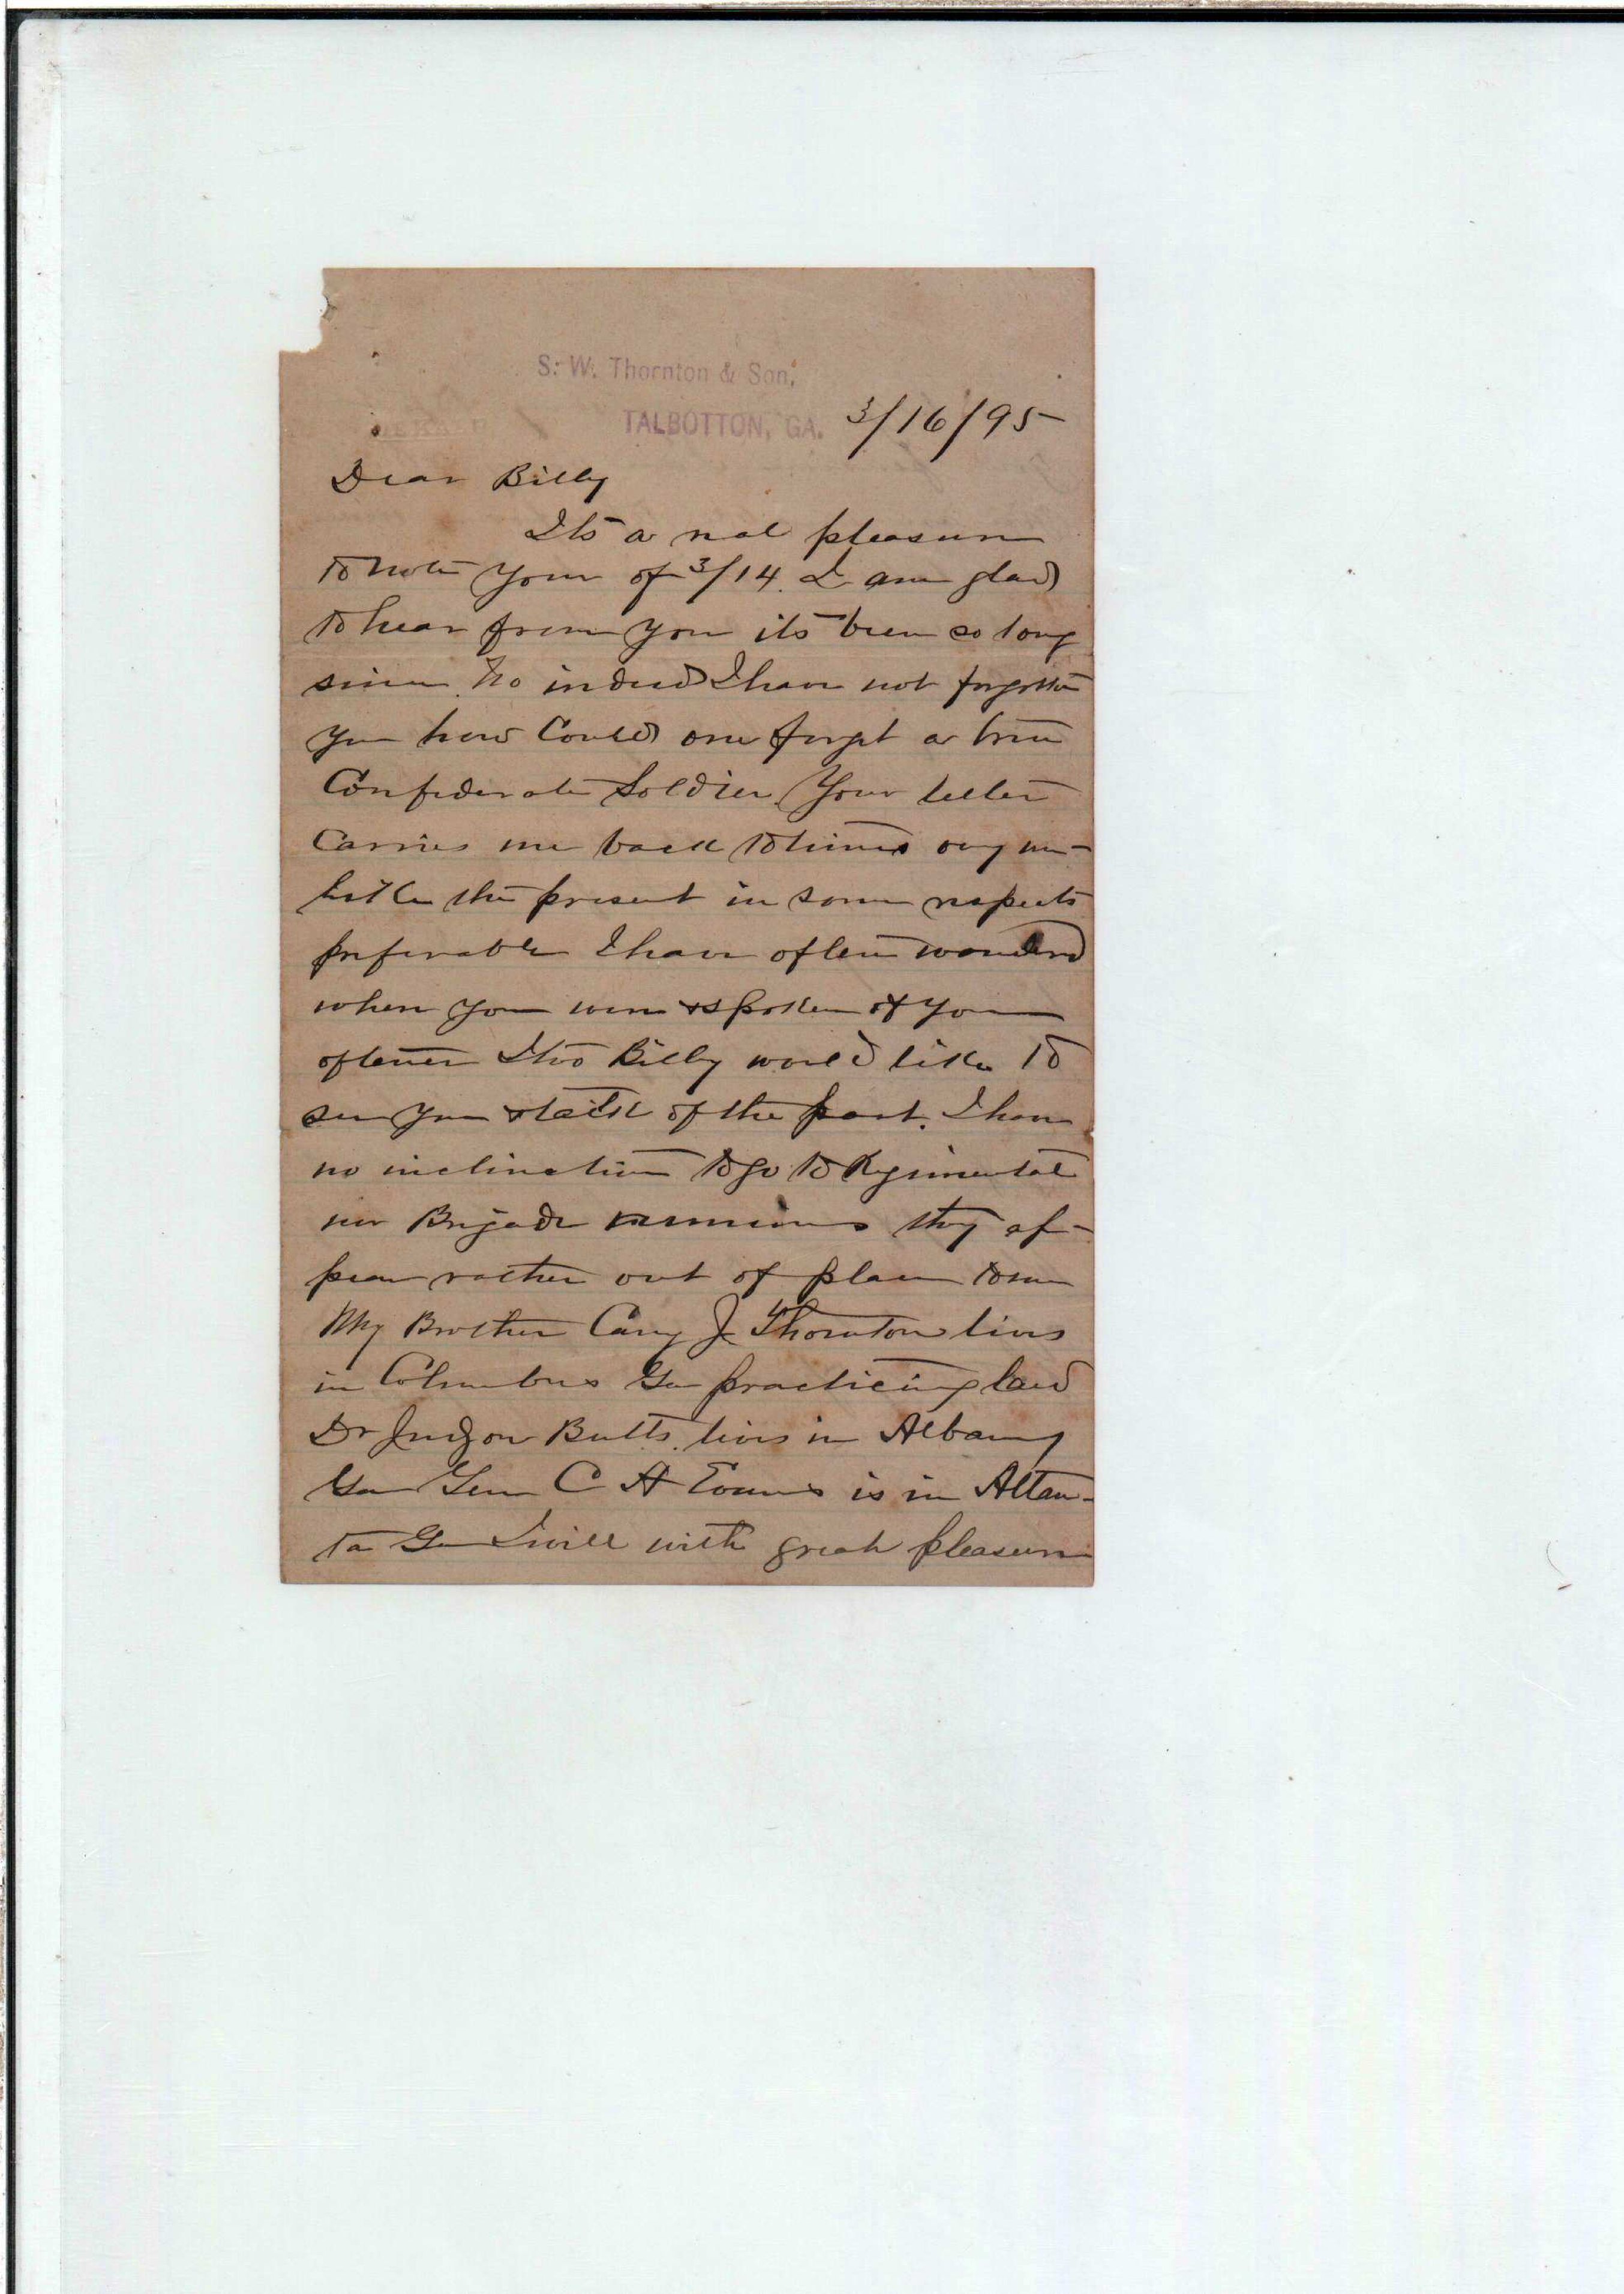 S. W. Thornton & Son,
TALBOTTON, GA. 3/16/95
Dear Billy
Its a real pleasure
to note your of 3/14. I am glad
to hear from you its been so long
since. No indeed I have not forgotten
you how could one forget a true
Confederate Soldier Your letter
Carries me back to times very un-
like the present in some respects
preferable I have often wondered
when you were & spoken of you
oftener I too Billy would like to
see you & talk of the past. I have
no inclination to go to Regimental
nor Brigade reunions they ap-
pear rather out of place to me
My Brother Cary J Thornton lives
in Columbus Ga practicing law
Dr Judson Butts lives in Albany
Ga Gen C A Evans is in Atlan-
ta Ga I will with great pleasure